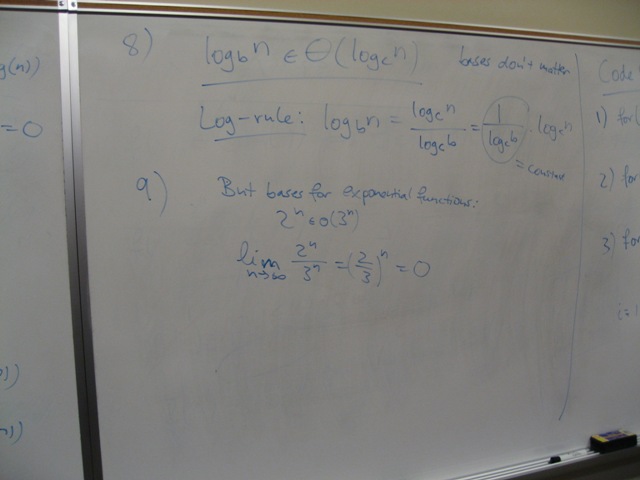 g(n))
= 0
n))
n))
8) log_b n ∈ Θ(log_c n) bases don't matter
Log-rule: log_b n = log_c n / log_c b = 1 / log_c b · log_c n
= constant
9) But bases for exponential functions:
2^n ∈ o(3^n)
lim n→∞ 2^n / 3^n = (2/3)^n = 0
Code
1) for(
2) for
3) for
i=1